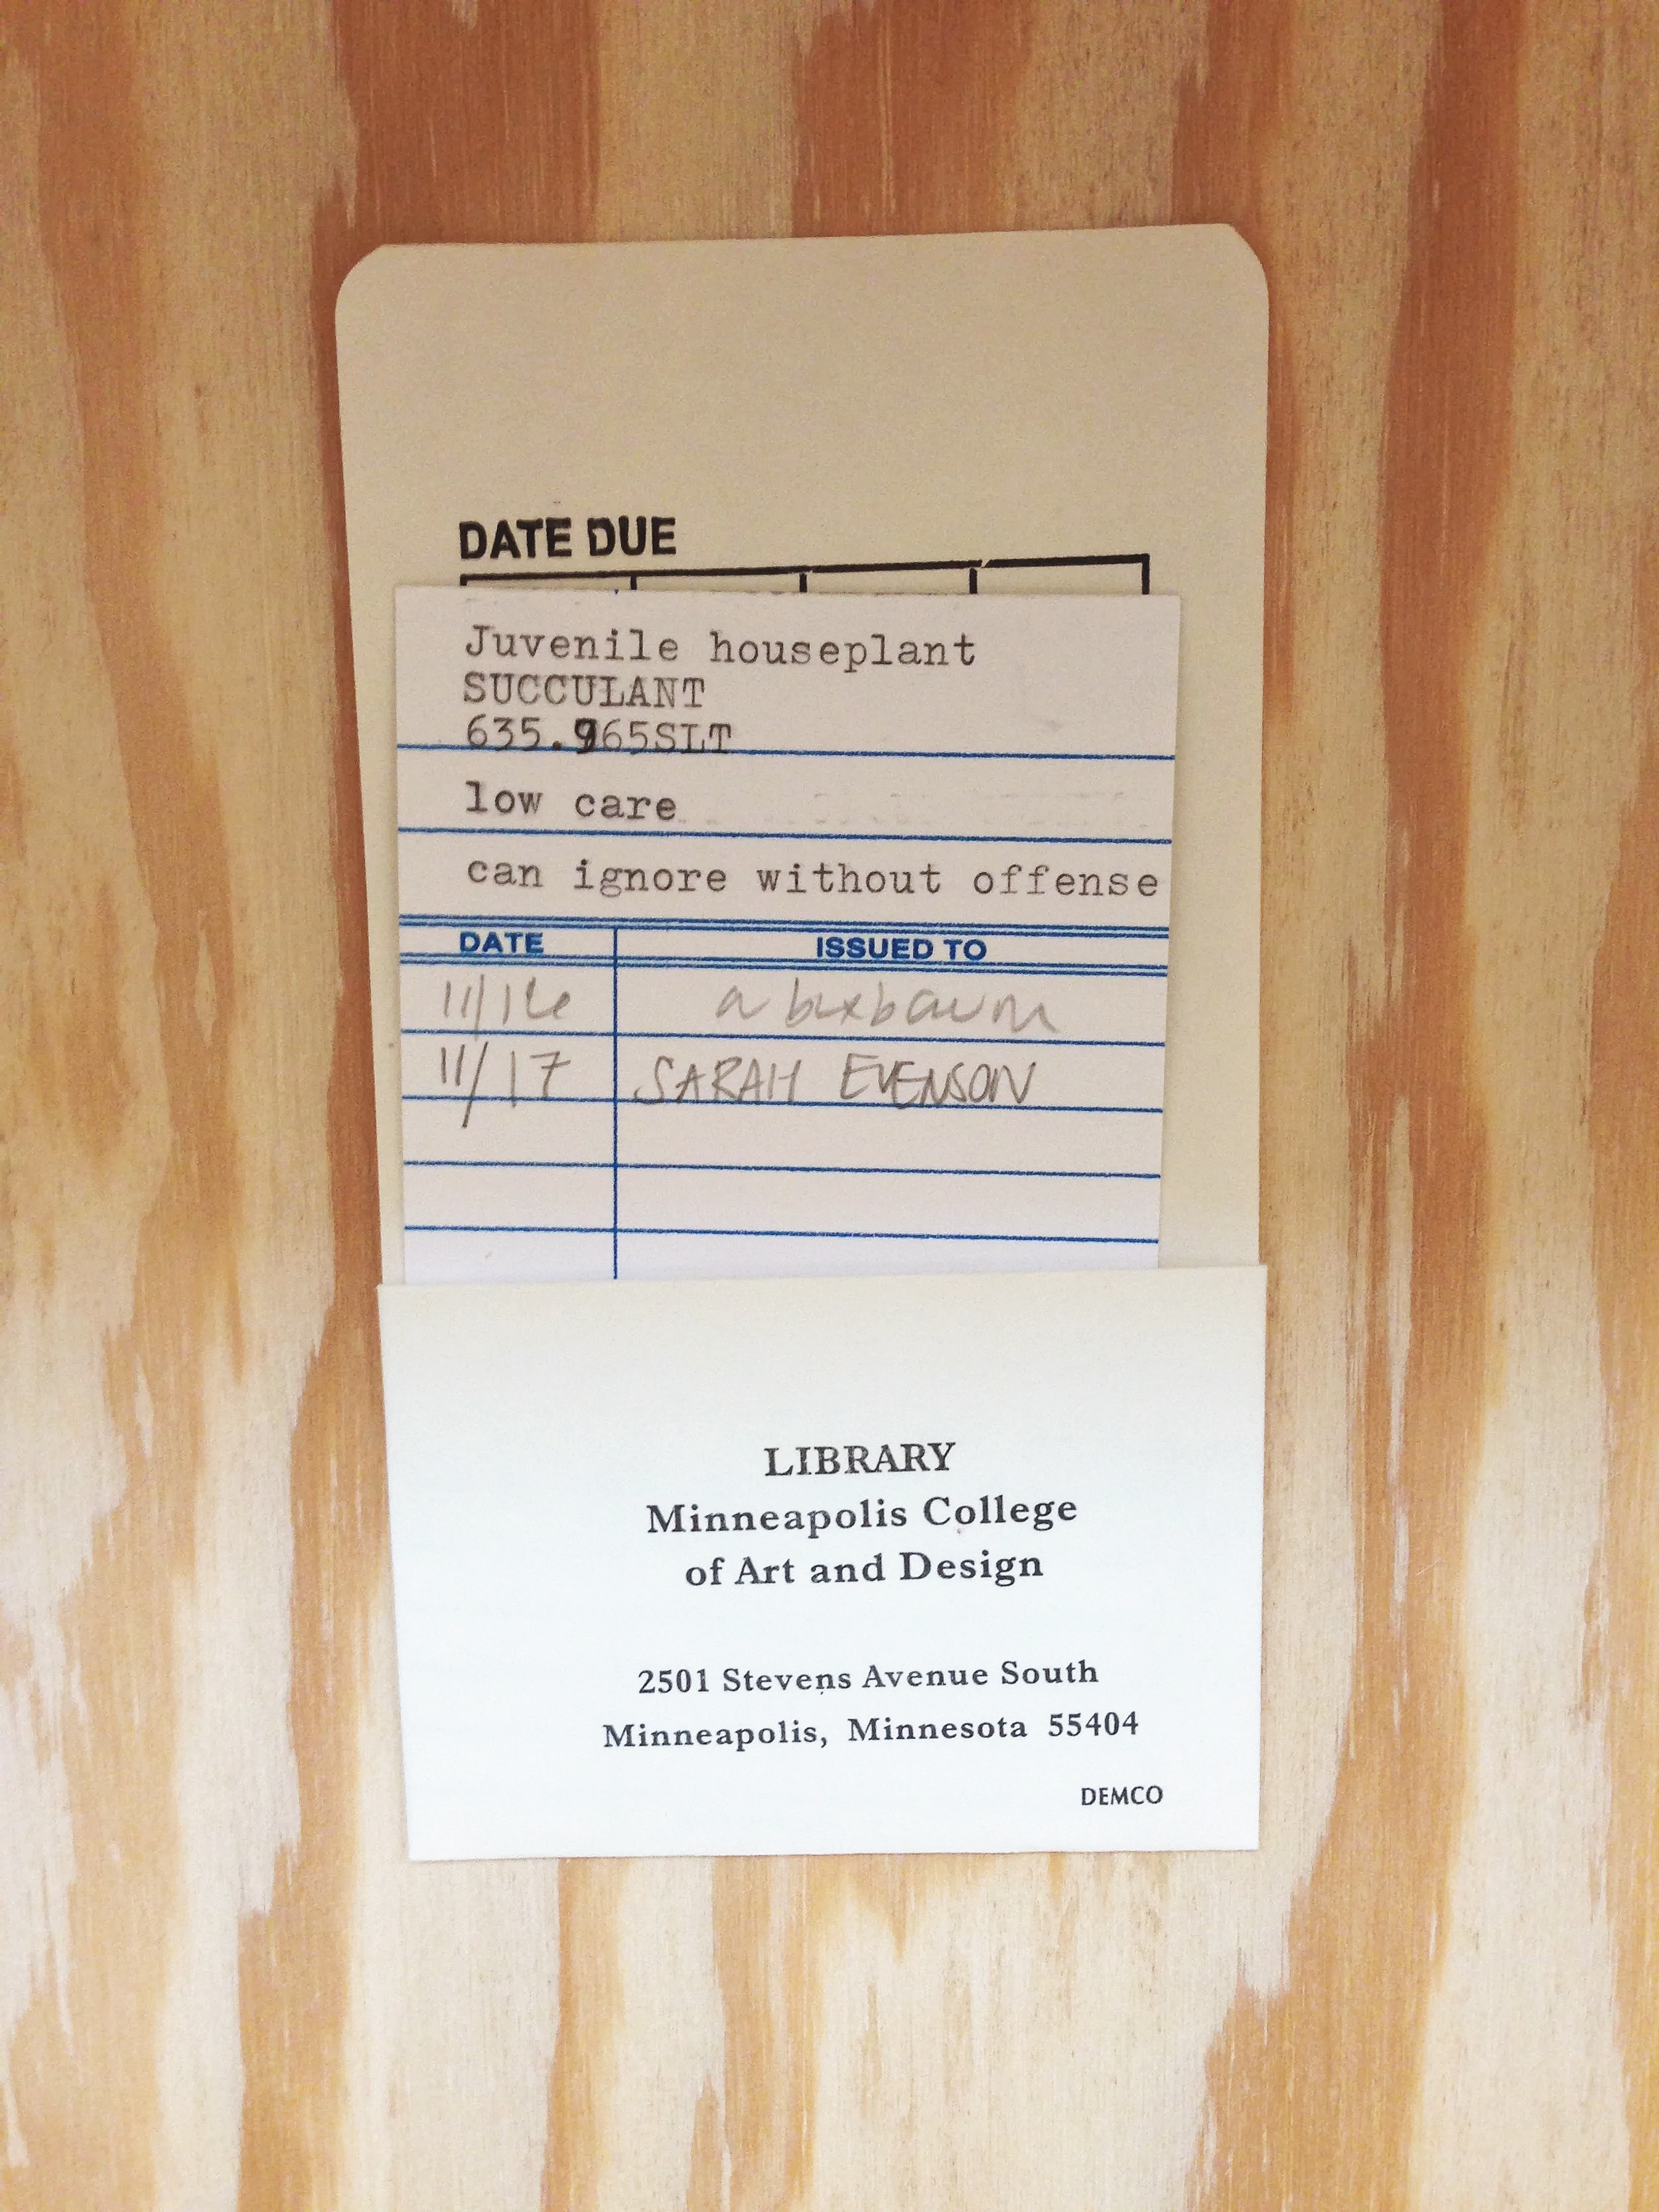 DATE DUE
Juvenile houseplant
SUCCULANT
635.965SLT
low care
can ignore without offense
DATE ISSUED TO
11/16 a buxbaum
11/17 SARAH EVENSON
LIBRARY
Minneapolis College
of Art and Design
2501 Stevens Avenue South
Minneapolis, Minnesota 55404
DEMCO